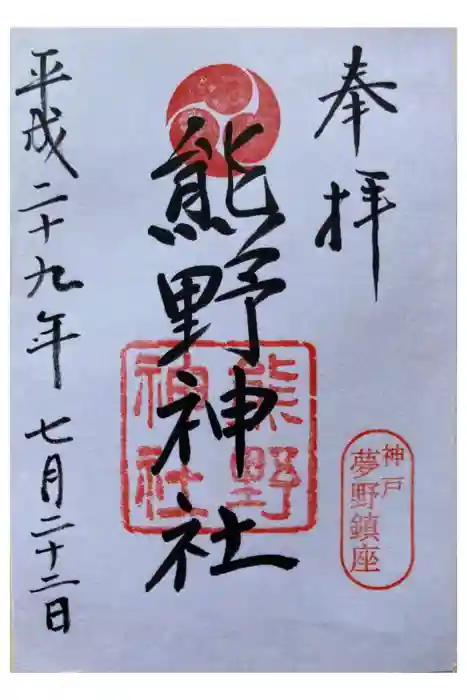 奉拝
神戸
夢野鎮座
熊野神社
熊野
神社
平成二十九年七月二十二日